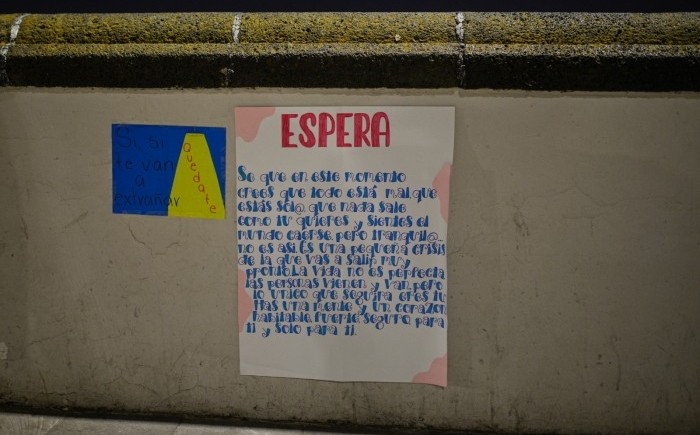 Si, si
te van
a
extrañar
Quedate
ESPERA
Se que en este momento
crees que todo está mal, que
estás sol@ que nada sale
como tu quieres y sientes el
mundo caerse, pero tranquil@
no es asi. Es una pequeña crisis
de la que vas a salir muy
pronto. La vida no es perfecta
las personas vienen y van, pero
lo unico que seguira eres tu
Has una mente y un corazon
habitable, fuerte, seguro para
ti y solo para ti.